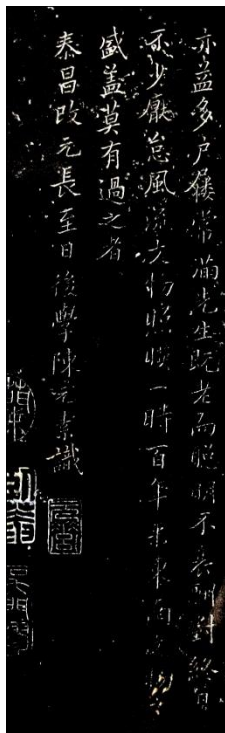 亦益多户屨常滿先生既老而聰明不衰酬對終日
不少厭怠風流文物照暎一時百年来東南文物之
盛蓋莫有過之者
泰昌改元長至日後學陳元素識